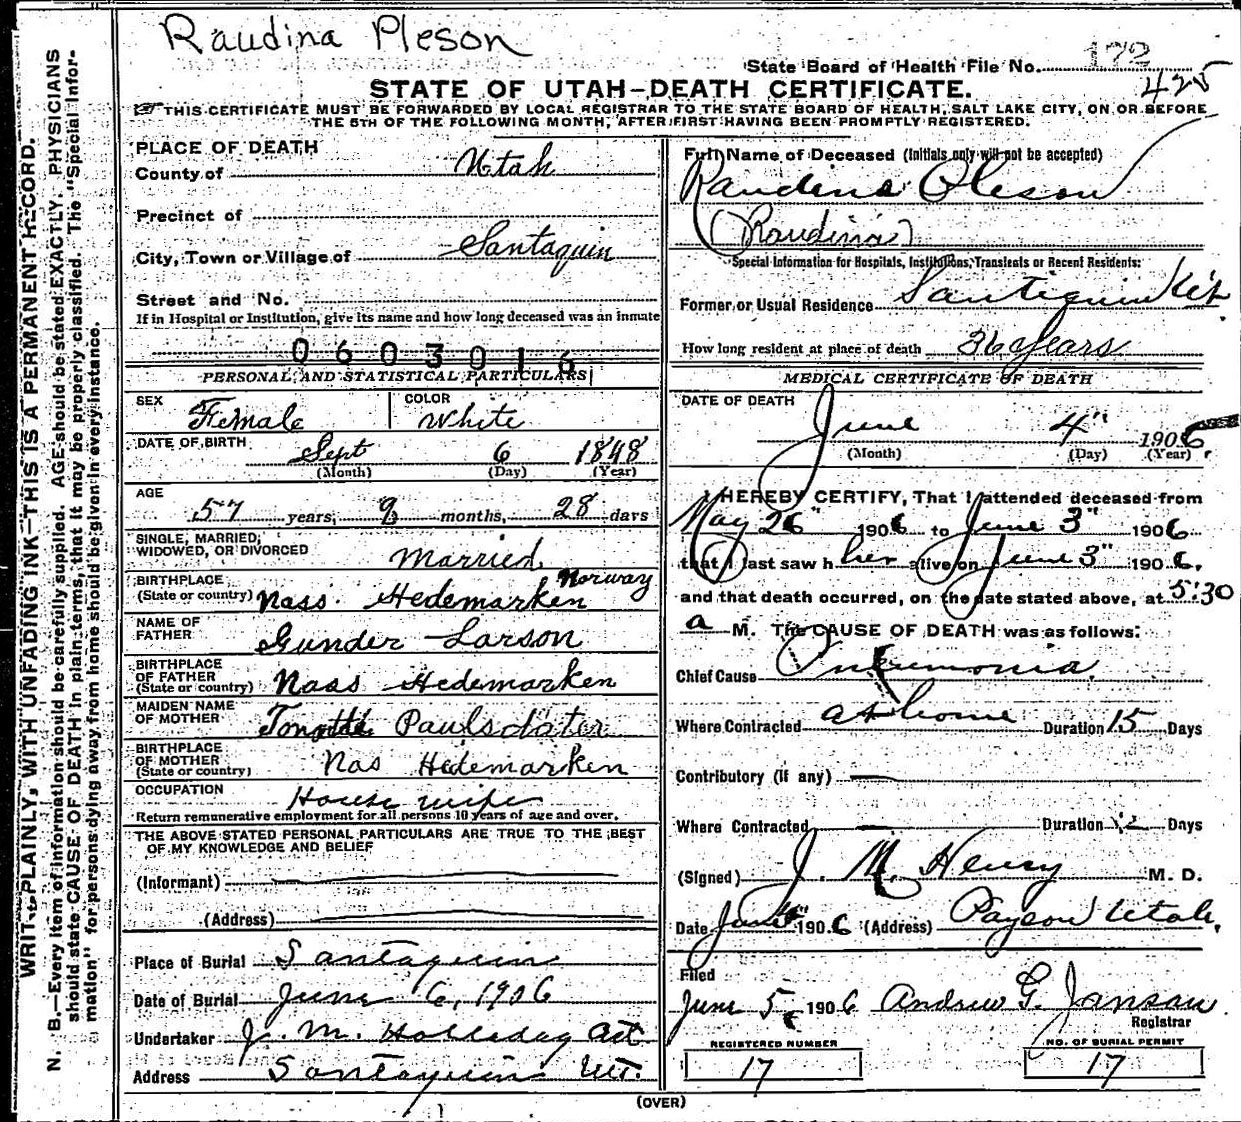 Raudina Pleson
State Board of Health File No. 172
425
STATE OF UTAH—DEATH CERTIFICATE.
THIS CERTIFICATE MUST BE FORWARDED BY LOCAL REGISTRAR TO THE STATE BOARD OF HEALTH, SALT LAKE CITY, ON OR BEFORE
THE 5TH OF THE FOLLOWING MONTH, AFTER FIRST HAVING BEEN PROMPTLY REGISTERED.
WRITE PLAINLY, WITH UNFADING INK—THIS IS A PERMANENT RECORD.
N. B.—Every item of information should be carefully supplied. AGE should be stated EXACTLY. PHYSICIANS
should state CAUSE OF DEATH in plain terms, that it may be properly classified. The "Special Infor-
mation" for persons dying away from home should be given in every instance.
PLACE OF DEATH
County of Utah
Precinct of
City, Town or Village of Santaquin
Street and No.
If in Hospital or Institution, give its name and how long deceased was an inmate
0603016
PERSONAL AND STATISTICAL PARTICULARS
SEX Female COLOR White
DATE OF BIRTH Sept 6 1848
(Month) (Day) (Year)
AGE
57 years, 9 months, 28 days
SINGLE, MARRIED,
WIDOWED, OR DIVORCED Married
BIRTHPLACE Norway
(State or country) Nass Hedemarken
NAME OF
FATHER Gunder Larson
BIRTHPLACE
OF FATHER
(State or country) Naas Hedemarken
MAIDEN NAME
OF MOTHER Paulsdater
BIRTHPLACE
OF MOTHER
(State or country) Nas Hedemarken
OCCUPATION House wife
Return remunerative employment for all persons 10 years of age and over.
THE ABOVE STATED PERSONAL PARTICULARS ARE TRUE TO THE BEST
OF MY KNOWLEDGE AND BELIEF
(Informant)
(Address)
Place of Burial Santaquin
Date of Burial June 6, 1906
Undertaker J. M. Holladay
Address Santaquin Ut.
Full Name of Deceased (Initials only will not be accepted)
Raudina Oleson
(Raudina)
Special Information for Hospitals, Institutions, Transients or Recent Residents:
Former or Usual Residence Santiquin
How long resident at place of death 36 years
MEDICAL CERTIFICATE OF DEATH
DATE OF DEATH
June 4" 1906.
(Month) (Day) (Year)
I HEREBY CERTIFY, That I attended deceased from
May 26" 1906 to June 3" 1906
that I last saw her alive on June 3" 1906.
and that death occurred, on the date stated above, at 5:30
a M. The CAUSE OF DEATH was as follows:
Chief Cause Pneumonia
Where Contracted at home Duration 15 Days
Contributory (if any) —
Where Contracted Duration Days
(Signed) J. M. Henry M. D.
Date June 1906 (Address) Payson Utah,
Filed
June 5 1906 Andrew G. Janson
Registrar
REGISTERED NUMBER
17
NO. OF BURIAL PERMIT
17
(OVER)